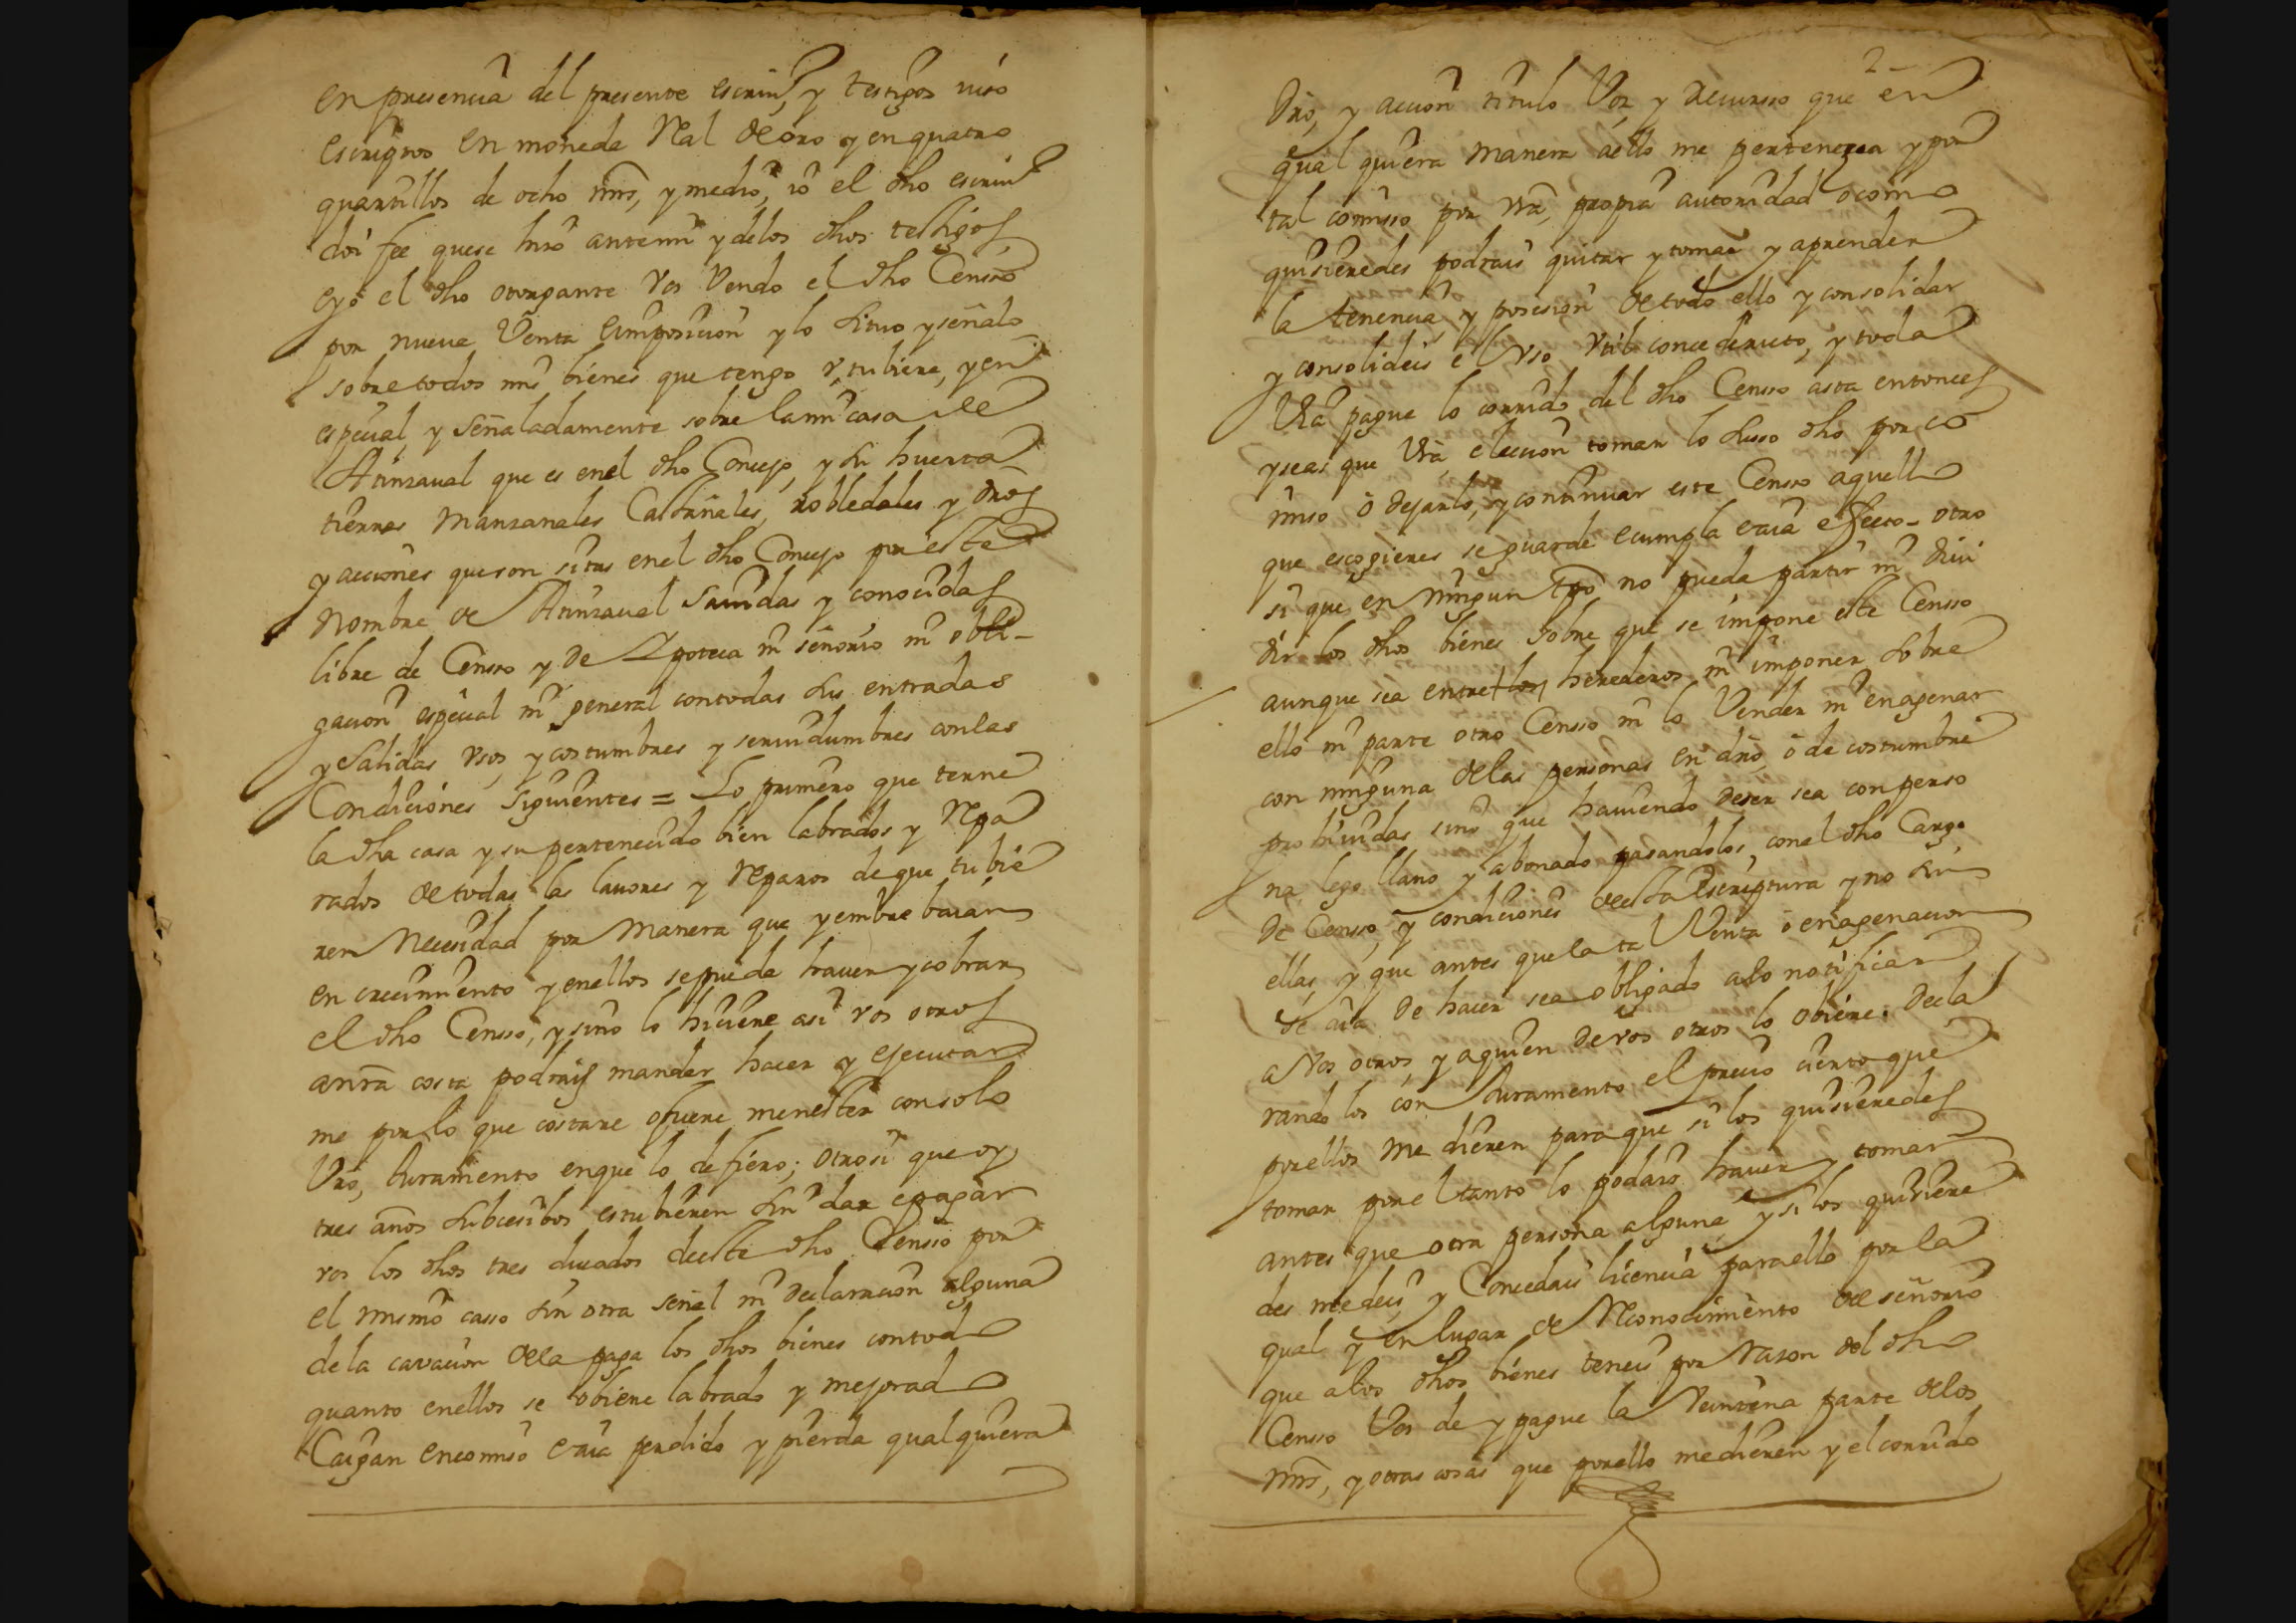 en presencia del presente escriuº, y testigos uiso
escriptos en moneda Real de oro y en quatro
quartillos de ocho mrs, y medio, io el dho escriuº
doi fee que se hizo antemi y delos dhos testigos
e yo el dho otorgante vos vendo el dho Censso
por nueua Venta e imposicion y lo situo y señalo
sobre todos mis bienes que tengo y tubiere, y en
especial y señaladamente sobre la mi casa de
que es en el dho Concejo, y su huerta
tierras manzanales Castañales, robledales y dros
y acciones que son sitas en el dho Concejo por este
nombre de sauidas y conocidas
libre de Censso y de Ypoteca ni señorio ni obli-
gacion especial ni general con todas sus entradas
y salidas vsos, y costumbres y seruidumbres con las
Condiciones siguientes = Lo primero que terne
la dha casa y su pertenecido bien labrados y Repa
rados de todas las lauores y Reparos de que tubie
ren Necesidad por manera que
en crecimiento y en ellos se pueda hauer y cobrar
el dho Censso, y sino lo hiciere asi vos otros
a nra costa podrais mandar hacer y ejecutar
me por lo que costare o fuere menester con solo
Vro, Juramento en que lo defiero; otrosi que si
tres años subcesibos estubieren sin dar e pagar
vos los dhos tres ducados deeste dho Censso por
el mismo casso sin otra señal ni declaracion alguna
de la cavacion de la paga los dhos bienes con todo
quanto en ellos se obiere labrado y mejorado
Caigan en comiso e aia perdido y pierda qualquiera
2
Dro, y accion titulo Voz, y Recursso que en
qual quiera manera a ello me pertenezca y por
tal comisso por vra, propia autoridad o como
quisieredes podrais quitar y tomar y aprender
la tenencia, y posesion de todo ello y consolidar
y consolideis el vso vtil con el directo, y toda
Via pague lo corrido del dho Censso asta entonces
y seas que Vra, eleccion tomar lo susso dho por co
miso o dejarlo, y continuar este Censso aquello
que escogieres se guarde e cumpla e aia efecto - otro
si que en Ningun tpo no pueda partir ni diui
dir los dhos bienes sobre que se impone este Censso
aunque sea entre los herederos ni imponer sobre
ello ni parte otro Censso ni lo Vender ni enagenar
con ninguna de las personas en dro, o de costumbre
prohiuidas sino que hauiendo de ser sea con perso
na, lego llano y abonado pasandolos, con el dho Cargo
de Censso, y condiciones deesta escriptura y no sin
ellas, y que antes que la tal Venta o enagenacion
se aia de hacer sea obligado a lo notificar
a Vos otros, y a quien de vos otros lo obiere. Decla
rando los con Juramento el precio cierto que
por ellos me dieren para que si los quisieredes
tomar por el tanto lo podais hauer y tomar
antes que otra persona alguna y si los quisiere
des me deis, y Concedais licencia para ello por la
qual y en lugar de Reconocimiento de señorio
que a los dhos bienes teneis por Razon del dho
Censso Vos de y pague la Veintena parte de los
mrs, y otras cosas que por ello me dieren y el corrido